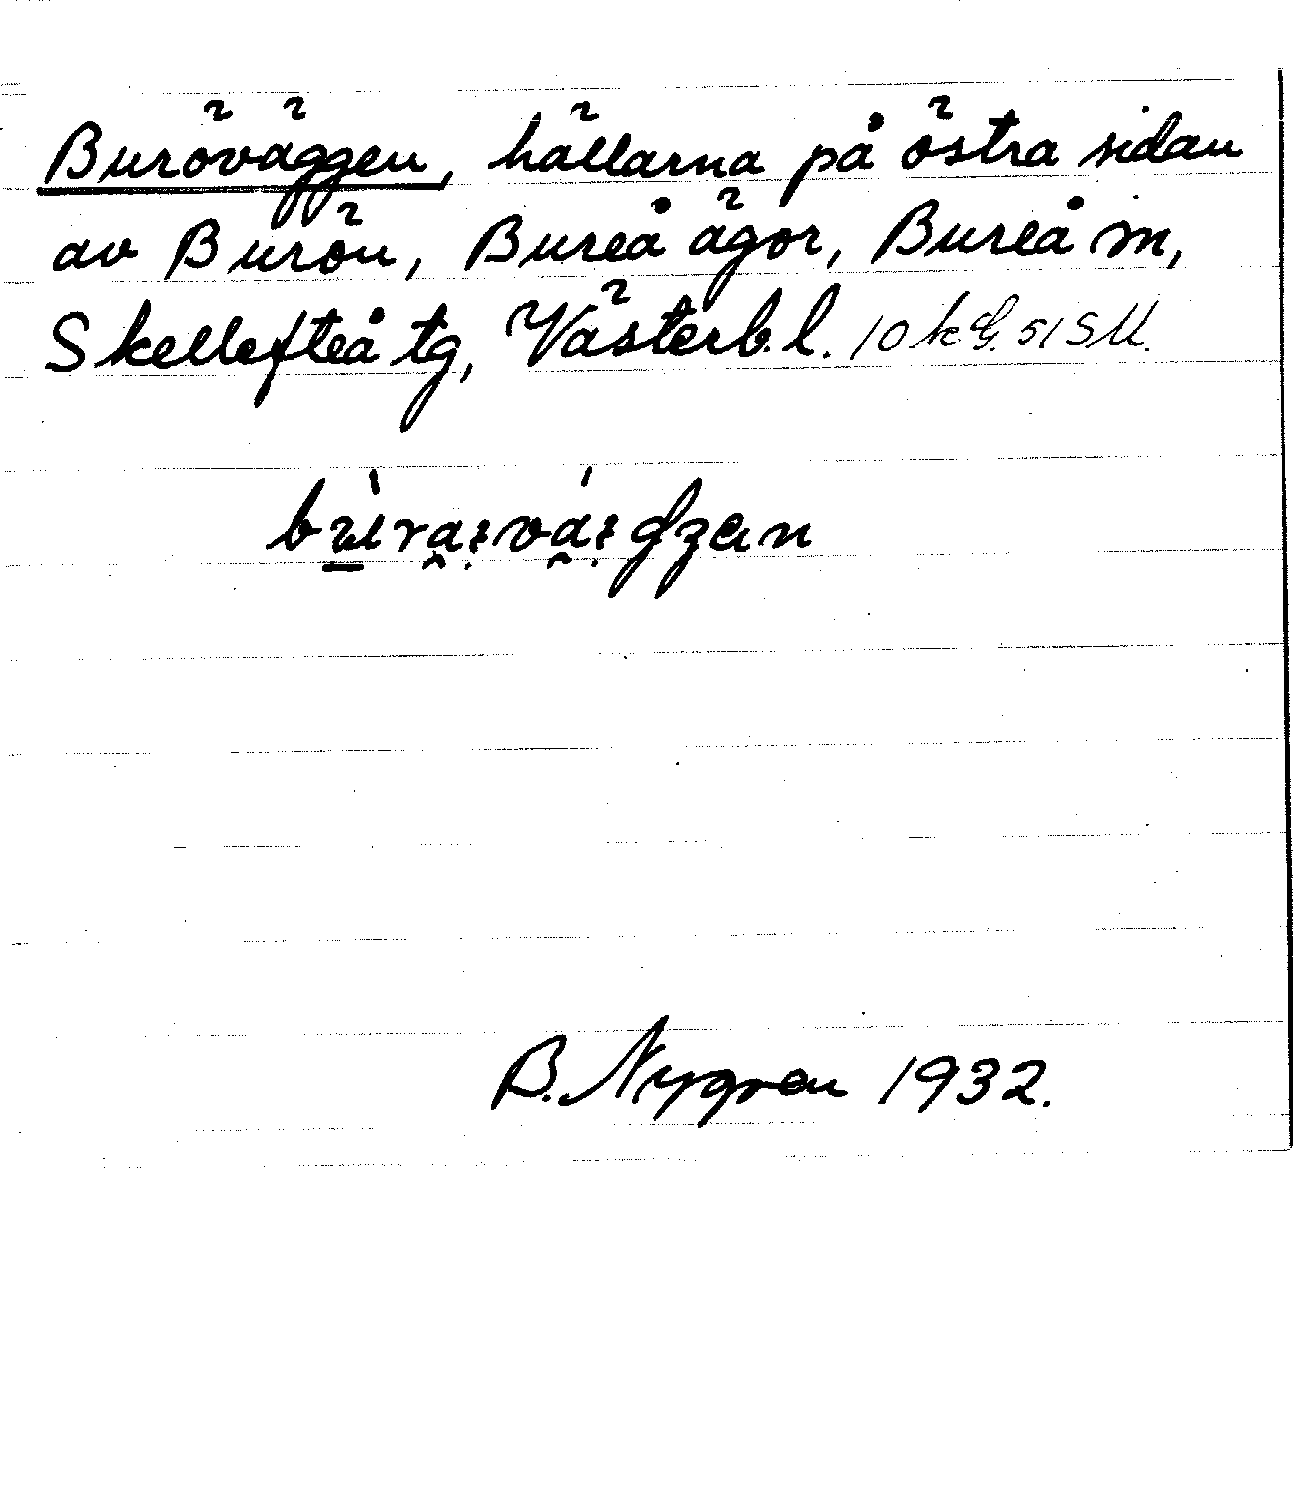 Buröväggen, hällarna på östra sidan
av Burön, Bureå ägor, Bureå sn,
Skellefteå tg, Västerb. l. 10 kG. 51 SU.
B. Nygren 1932.